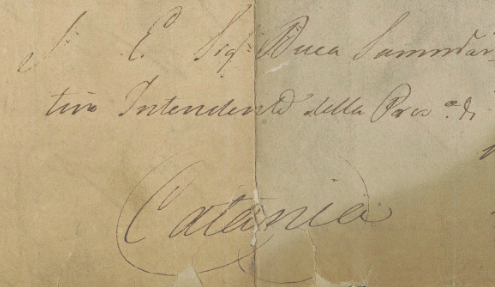 S. E. Sigr. Duca Sammar
tino Intendente della Prov.a di
Catania